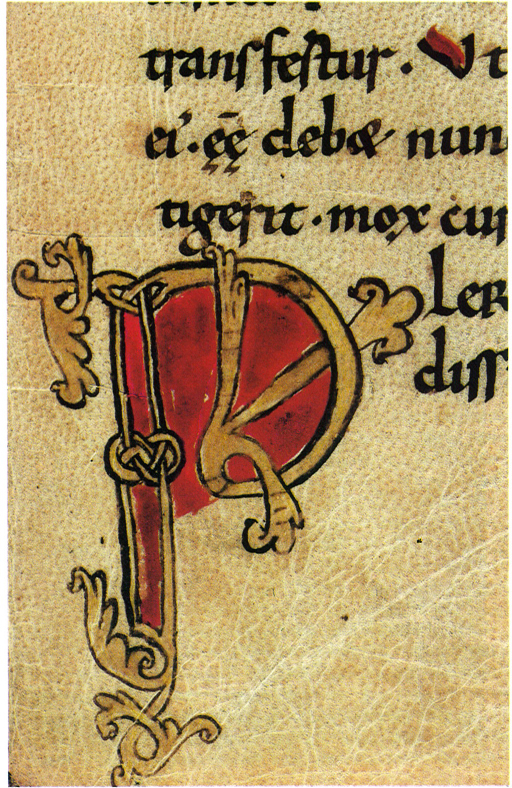 transfertur. Ut
ei'. eē debet nun
tigerit. mox cur
P Ler
diss